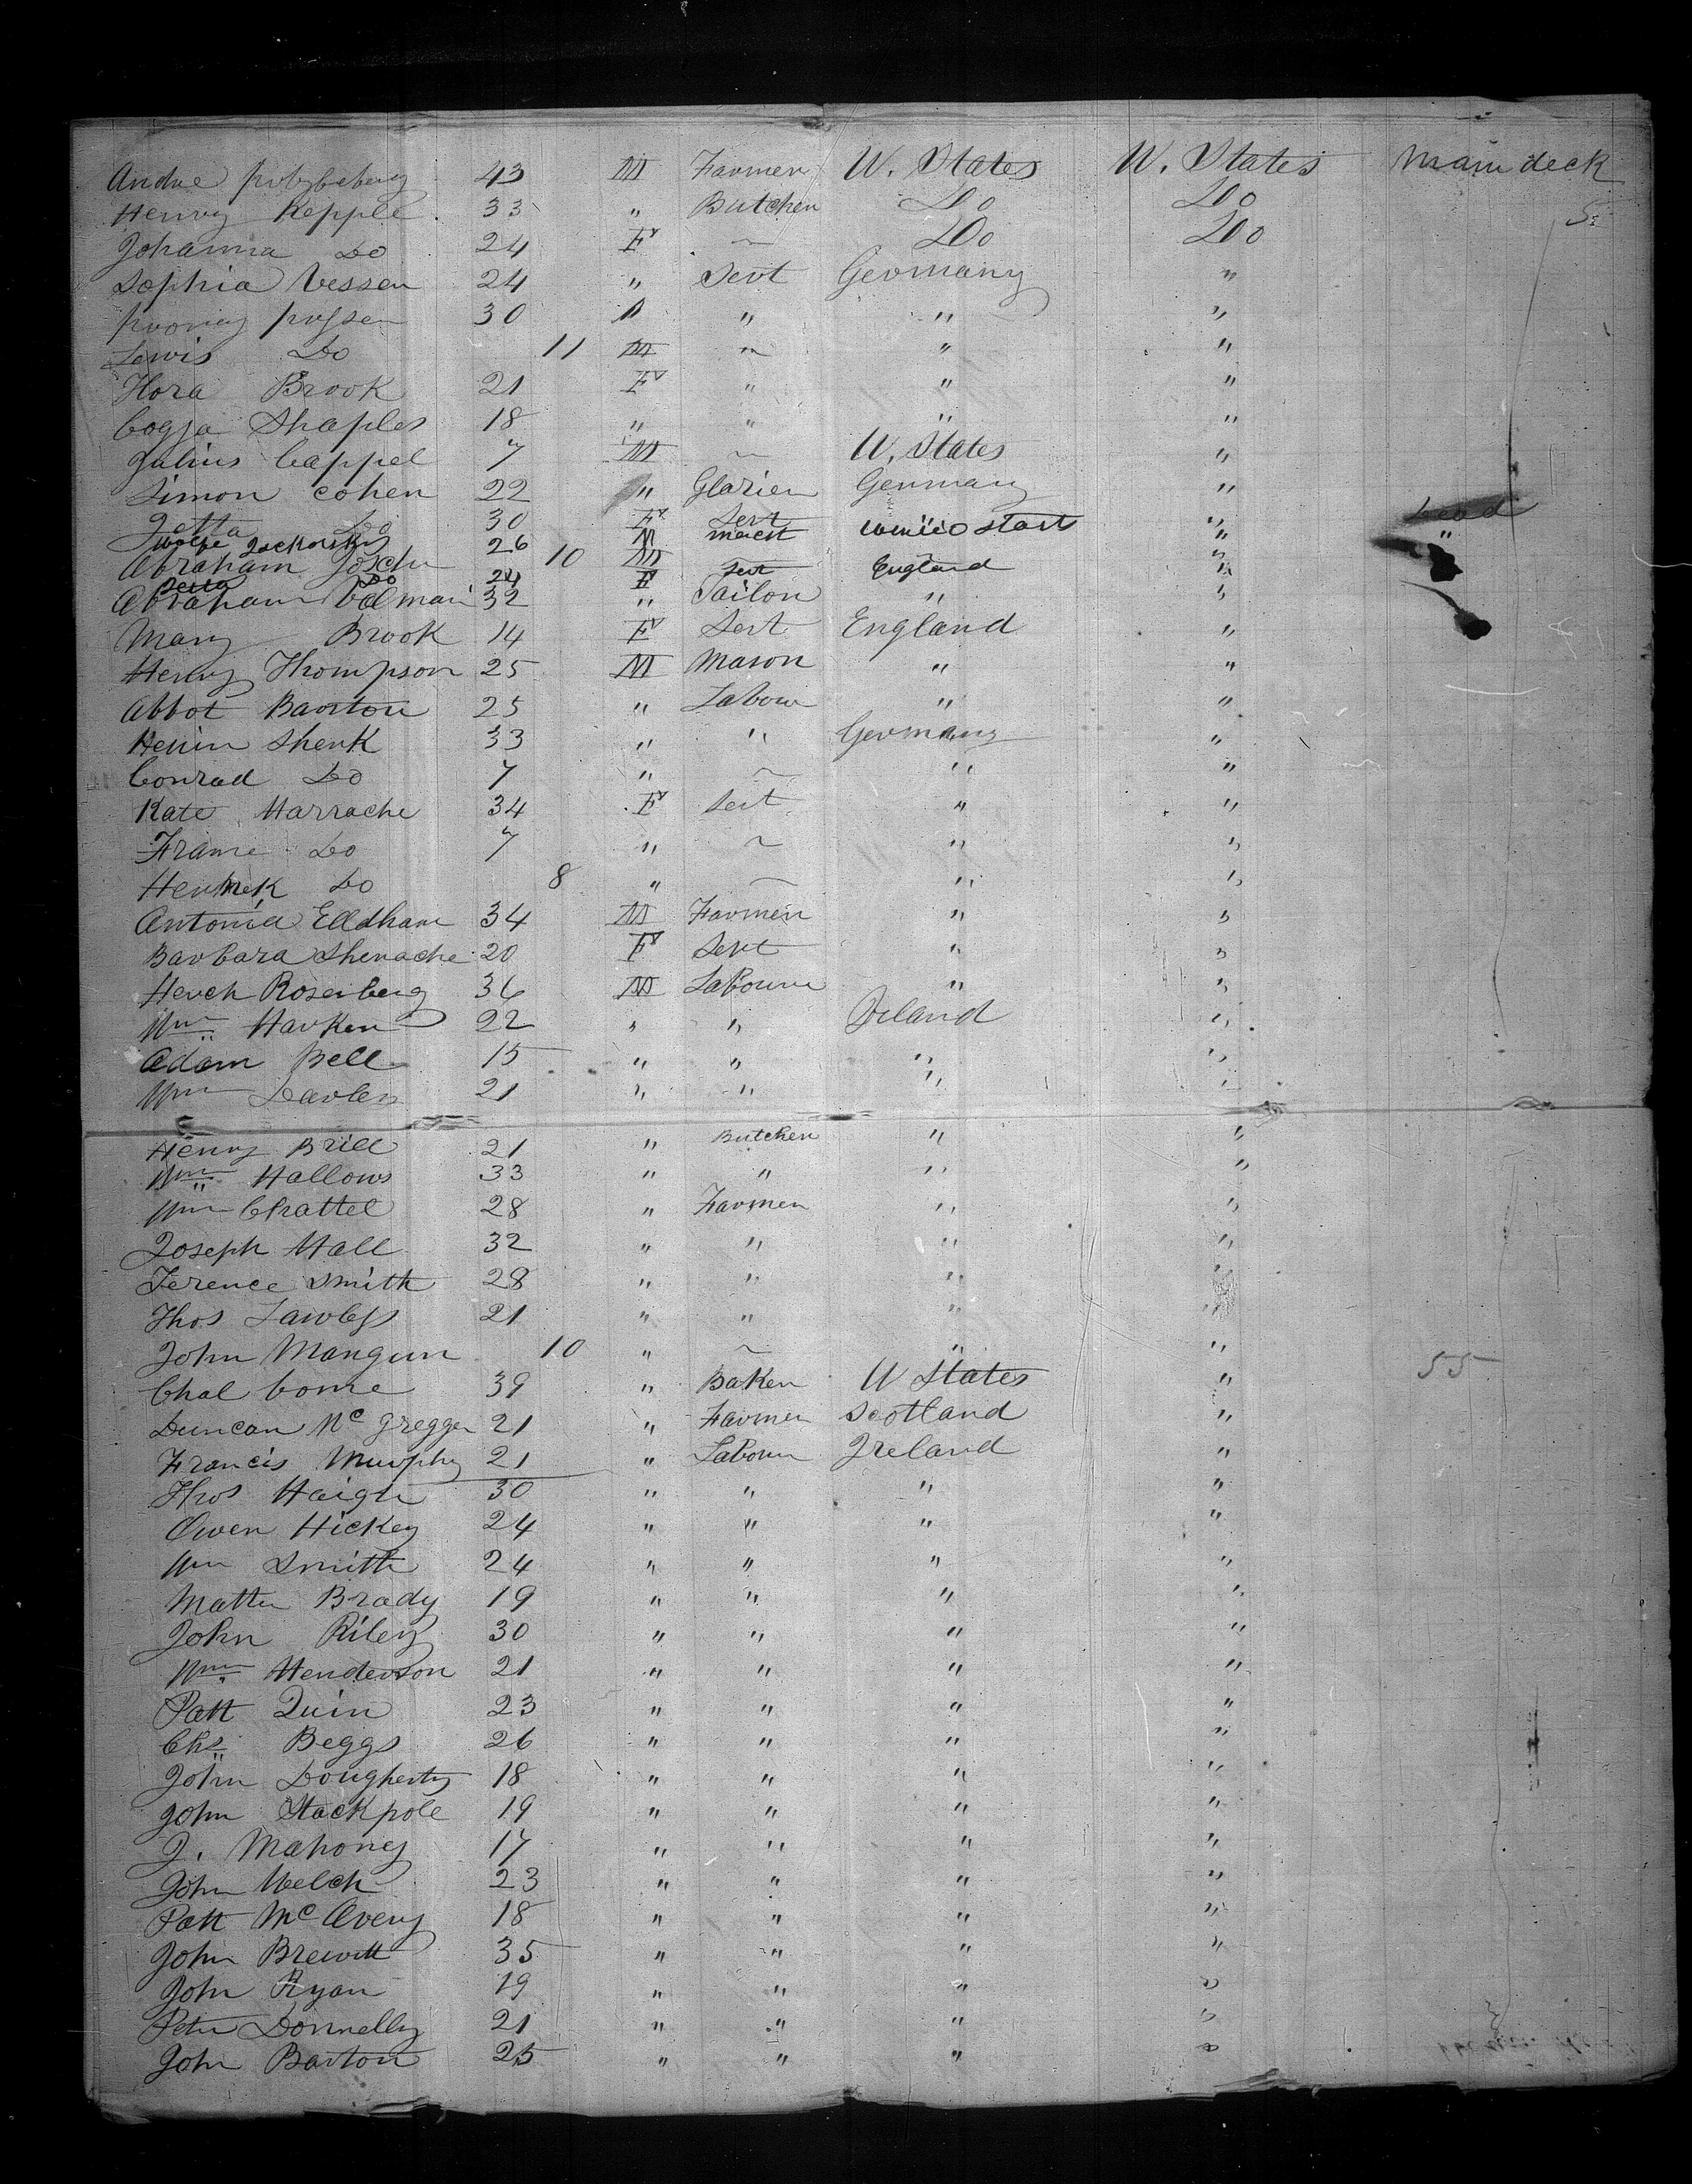 Andre 43 M Farmer U. States U. States Main deck
Henry Kepple 33 " Butcher Do Do
Johanna Do 24 F ~ Do Do
Sophia Vessen 24 " Sevt Germany "
30 " " " "
Lewis Do 11 M ~ " "
Flora Brook 21 F " " "
Shaples 18 " " " "
Julius Cappel 7 M ~ U. States "
Simon Cohen 22 " Glazier Germany "
Jetta Do 30 F Sevt "
26 M "
Abraham 10 M "
Do 24 F Sevt England "
Abraham 32 " Sailor " "
Mary Brook 14 F Sevt England "
Henry Thompson 25 M Mason " "
Abbot Barston 25 " Labour " "
Shenk 33 " " Germany "
Conrad Do 7 " ~ " "
Kate Marrache 34 F Sevt " "
Do 7 " ~ " "
Do 8 " ~ " "
Antonia Elldham 34 M Farmer " "
Barbara Shenache 20 F Sevt " "
Rosenberg 36 M Labour " "
Wm Harken 22 " " Ireland "
Adam Bell 15 " " " "
Wm 21 " " " "
Henry Brill 21 " Butcher " "
Wm Hallows 33 " " " "
Wm Chattel 28 " Farmer " "
Joseph Hall 32 " " " "
Terence Smith 28 " " " "
Thos Lawless 21 " " " "
John Mangun 10 " ~ " "
55
39 " Baker U States "
Duncan Mc Gregger 21 " Farmer Scotland "
Francis Murphy 21 " Labour Ireland "
Thos Haigh 30 " " " "
Owen Hickey 24 " " " "
Wm Smith 24 " " " "
Matthew Brady 19 " " " "
John Riley 30 " " " "
Wm Henderson 21 " " " "
Patt Quin 23 " " " "
Chs Beggs 26 " " " "
John Dougherty 18 " " " "
John Stackpole 19 " " " "
J. Mahoney 17 " " " "
John Welch 23 " " " "
Patt Mc Avery 18 " " " "
John Brewitt 35 " " " "
John Ryan 19 " " " "
Peter Donnelly 21 " " " "
John Barton 25 " " " "